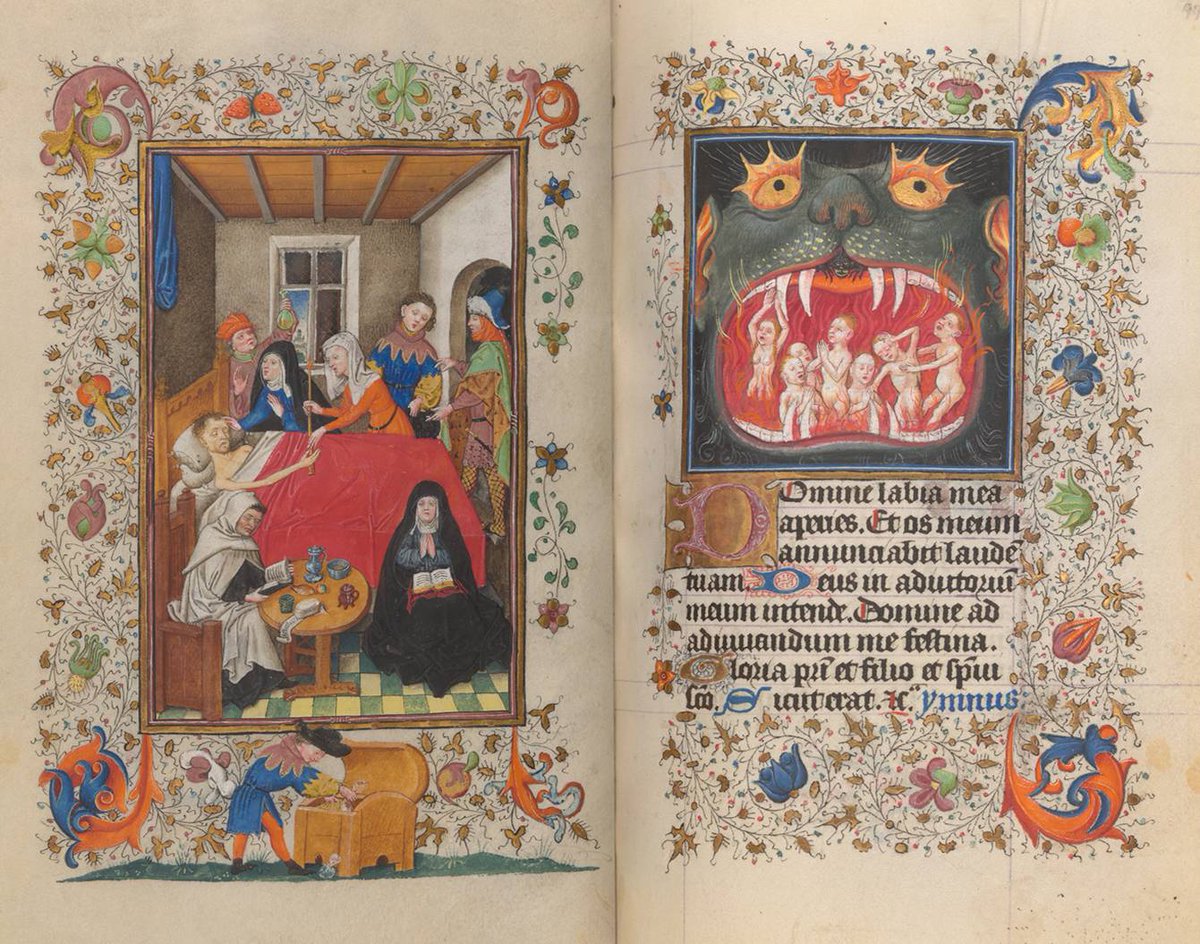 Domine labia mea
aperies. Et os meum
annunciabit laudē
tuam Deus in adiutoriū
meum intende. Domine ad
adiuuandum me festina.
Gloria pri̅ et filio et sp̅ui
sc̅o. Sicut erat. &c̅ ymnus